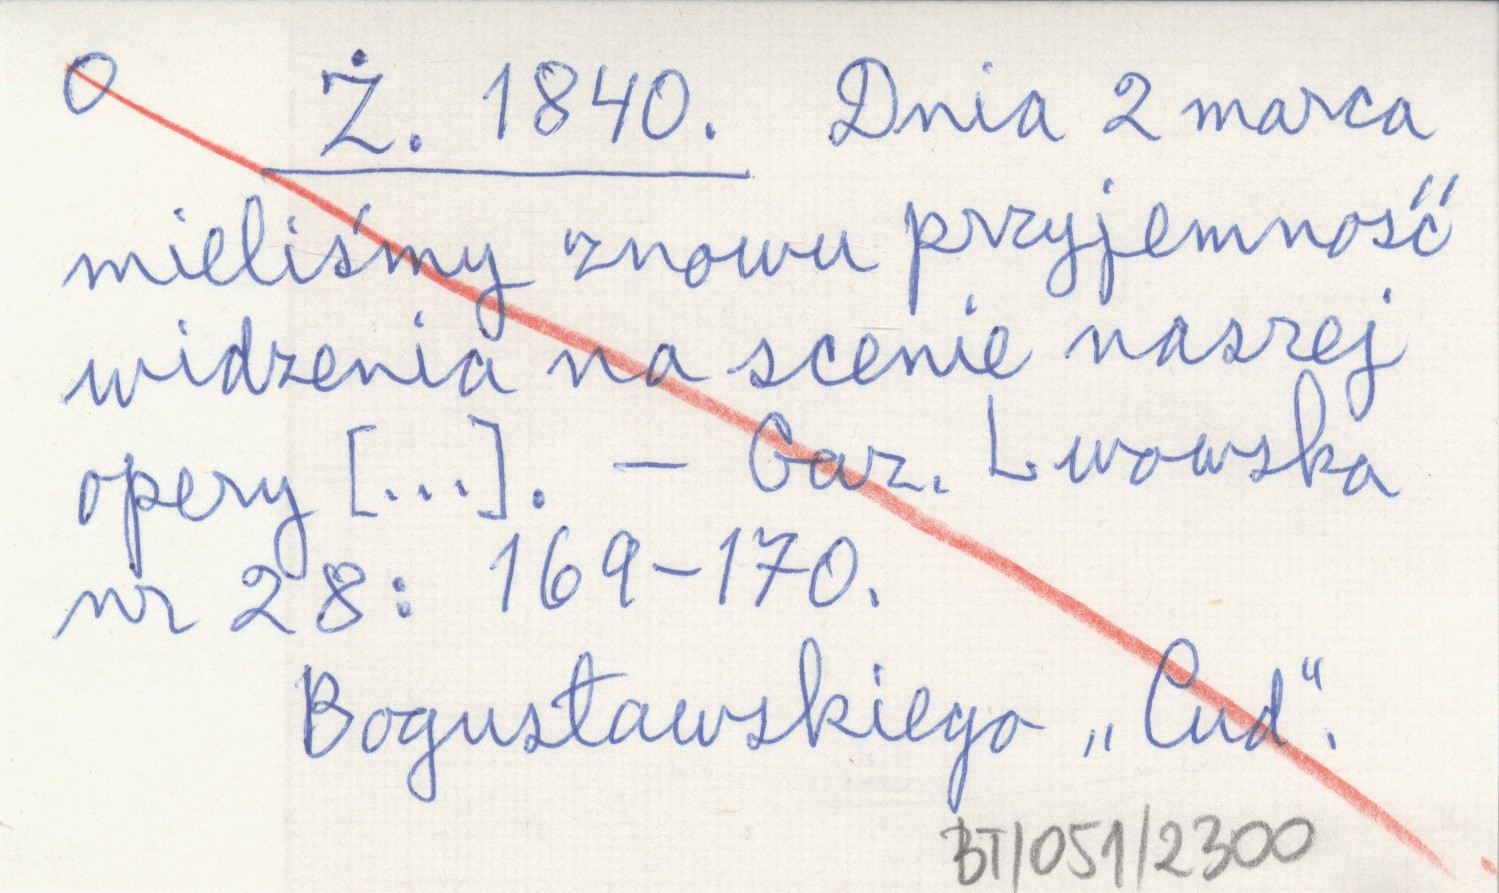 O Ż. 1840. Dnia 2 marca
mieliśmy znowu przyjemność
widzenia na scenie naszej
opery [...]. — Gaz. Lwowska
nr 28: 169-170.
Bogusławskiego „Cud".
BT/051/2300